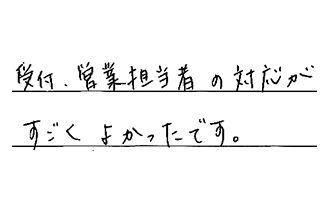 受付、営業担当者の対応が
すごくよかったです。